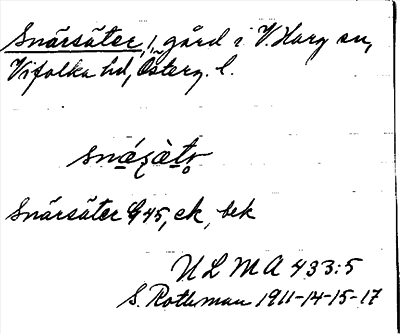 Snärsäter, 1, gård i V. Harg sn,
Vifolka hd, Österg. l.
snä́ṣä̀tr̥
Snärsäter G45, ek, bek
ULMA 433:5
S. Rothman 1911-14-15-17